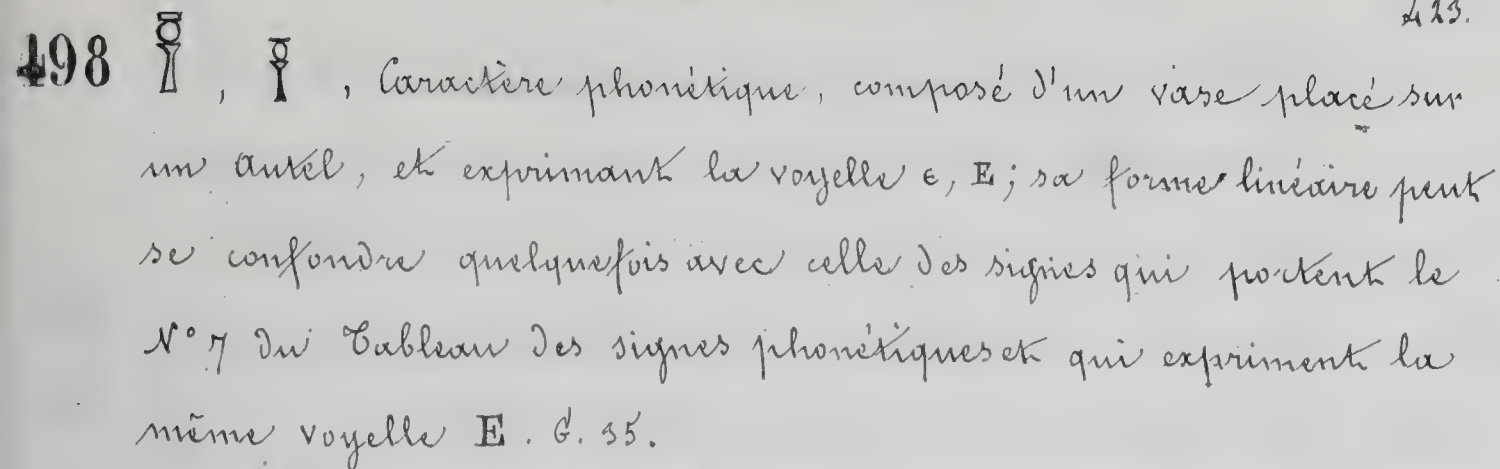 423.
498 , , Caractère phonétique, composé d'un vase placé sur
un autel, et exprimant la voyelle ϵ, E; sa forme linéaire peut
se confondre quelquefois avec celle des signes qui portent le
N° 7 du Tableau des signes phonétiques et qui expriment la
même voyelle E. G. 35.